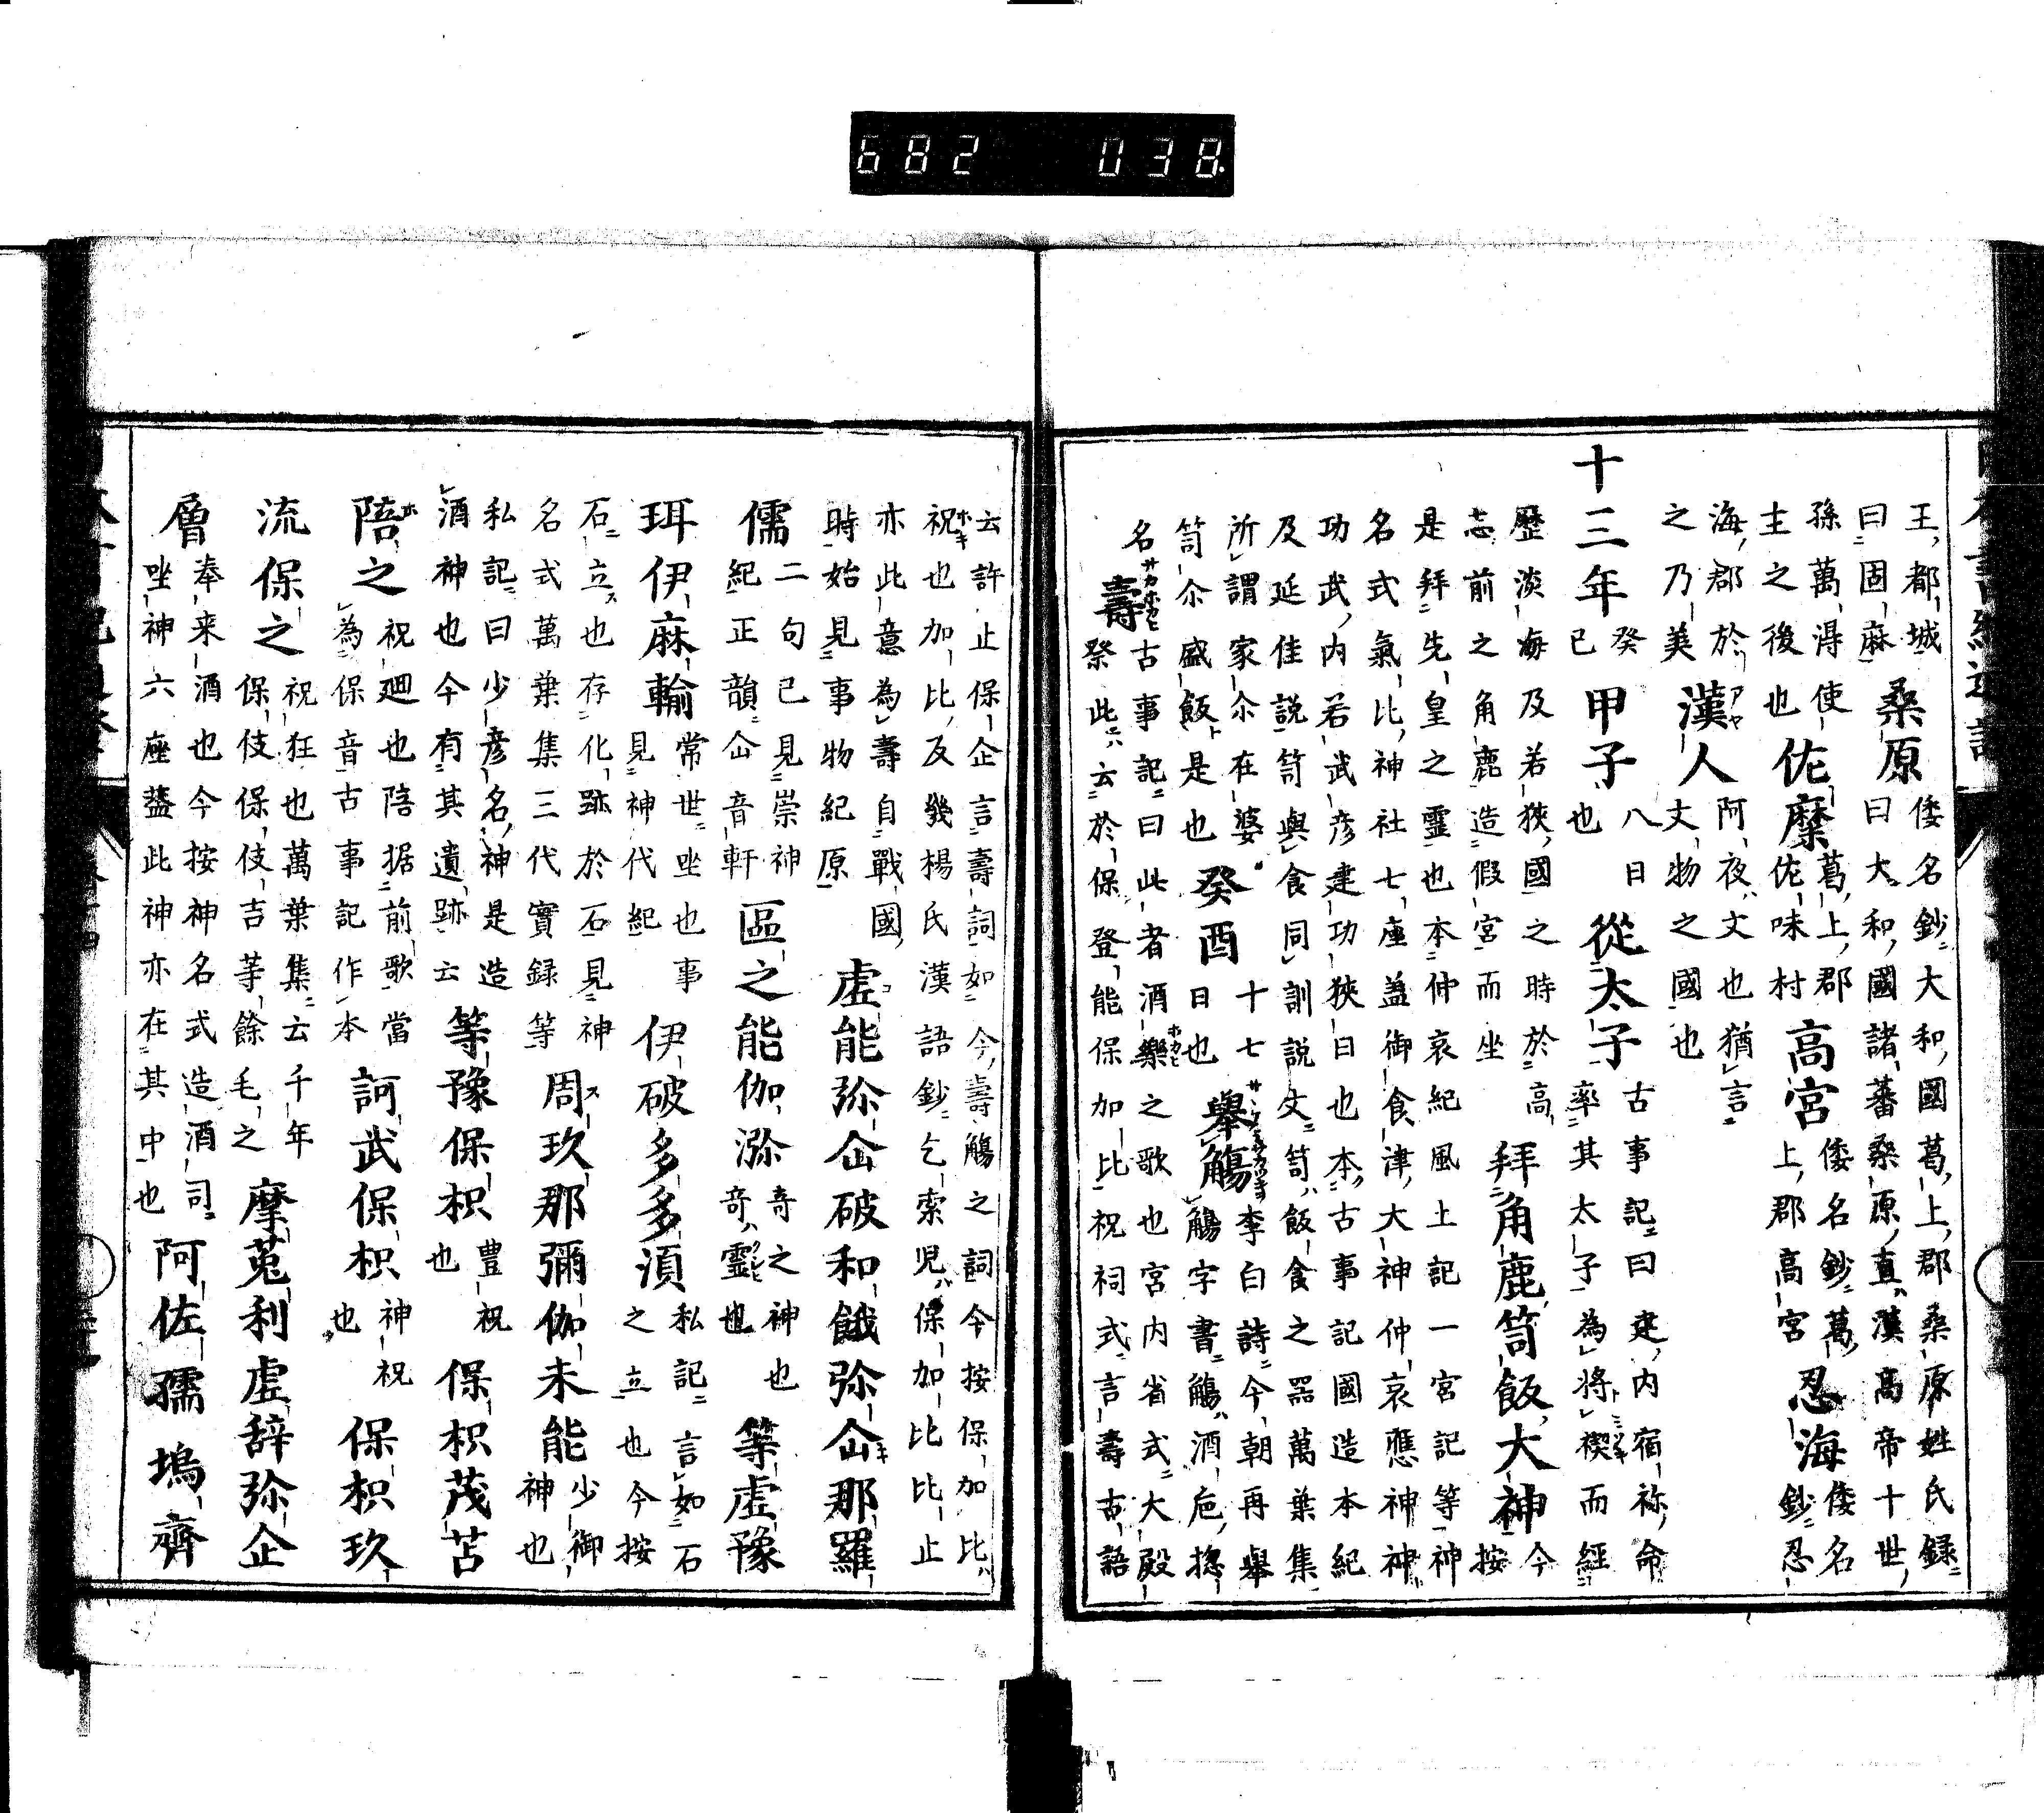 682 038
王都城
曰固麻
桑原
倭名鈔大和國葛上郡桑原姓氏録
曰大和國諸蕃桑原直漢高帝十世
孫萬得使
主之後也
佐糜
葛上郡
佐味村
高宮
倭名鈔葛
上郡高宮
忍海
倭名
鈔忍
海郡於
之乃美
漢人
アヤ
阿夜文也猶言
文物之國也
十三年
癸
巳
甲子
八日
也
從太子
古事記曰建内宿祢命
率其太子為將禊而經
歷淡海及若狹國之時於高
志前之角鹿造假宮而坐
拜角鹿笥飯大神
今
按
是拜先皇之靈也本仲哀紀風土記一宮記等神
名式氣比神社七座盖御食津大神仲哀應神神
功武内若武彦建功狹日也本古事記國造本紀
及延佳説笥與食同訓説文笥飯食之器萬葉集
所謂家尒在婆
笥尒盛飯是也
癸酉
十七
日也
舉觴
李白詩今朝再舉
觴字書觴酒巵揔
名
壽
サカホカヒ
古事記曰此者酒樂之歌也宮内省式大殿
祭此云於保登能保加比祝祠式言壽古語
云許止保企言壽詞如今壽觴之詞今按保加比
祝也加比反幾楊氏漢語鈔乞索児保加比比止
亦此意為壽自戰國
時始見事物紀原
虚能弥仚破和餓弥仚那羅
儒
二句已見崇神
紀正韻仚音軒
區之能伽瀰
奇之神也
奇靈也
等虚豫
珥伊麻輸
常世坐也事
見神代紀
伊破多多湏
私記言如石
之立也今按
石立也存化跡於石見神
名式萬葉集三代實録等
周玖那彌伽未能
少御
神也
私記曰少彦名神是造
酒神也今有其遺跡云
等豫保枳
豊祝
也
保枳茂苫
陪之
祝廻也陪据前歌當
為保音古事記作本
訶武保枳
神祝
也
保枳玖
流保之
祝狂也萬葉集云千年
保伎保伎吉等餘毛之
摩菟利虚辞弥企
層
奉来酒也今按神名式造酒司
坐神六座葢此神亦在其中也
阿佐孺塢齊